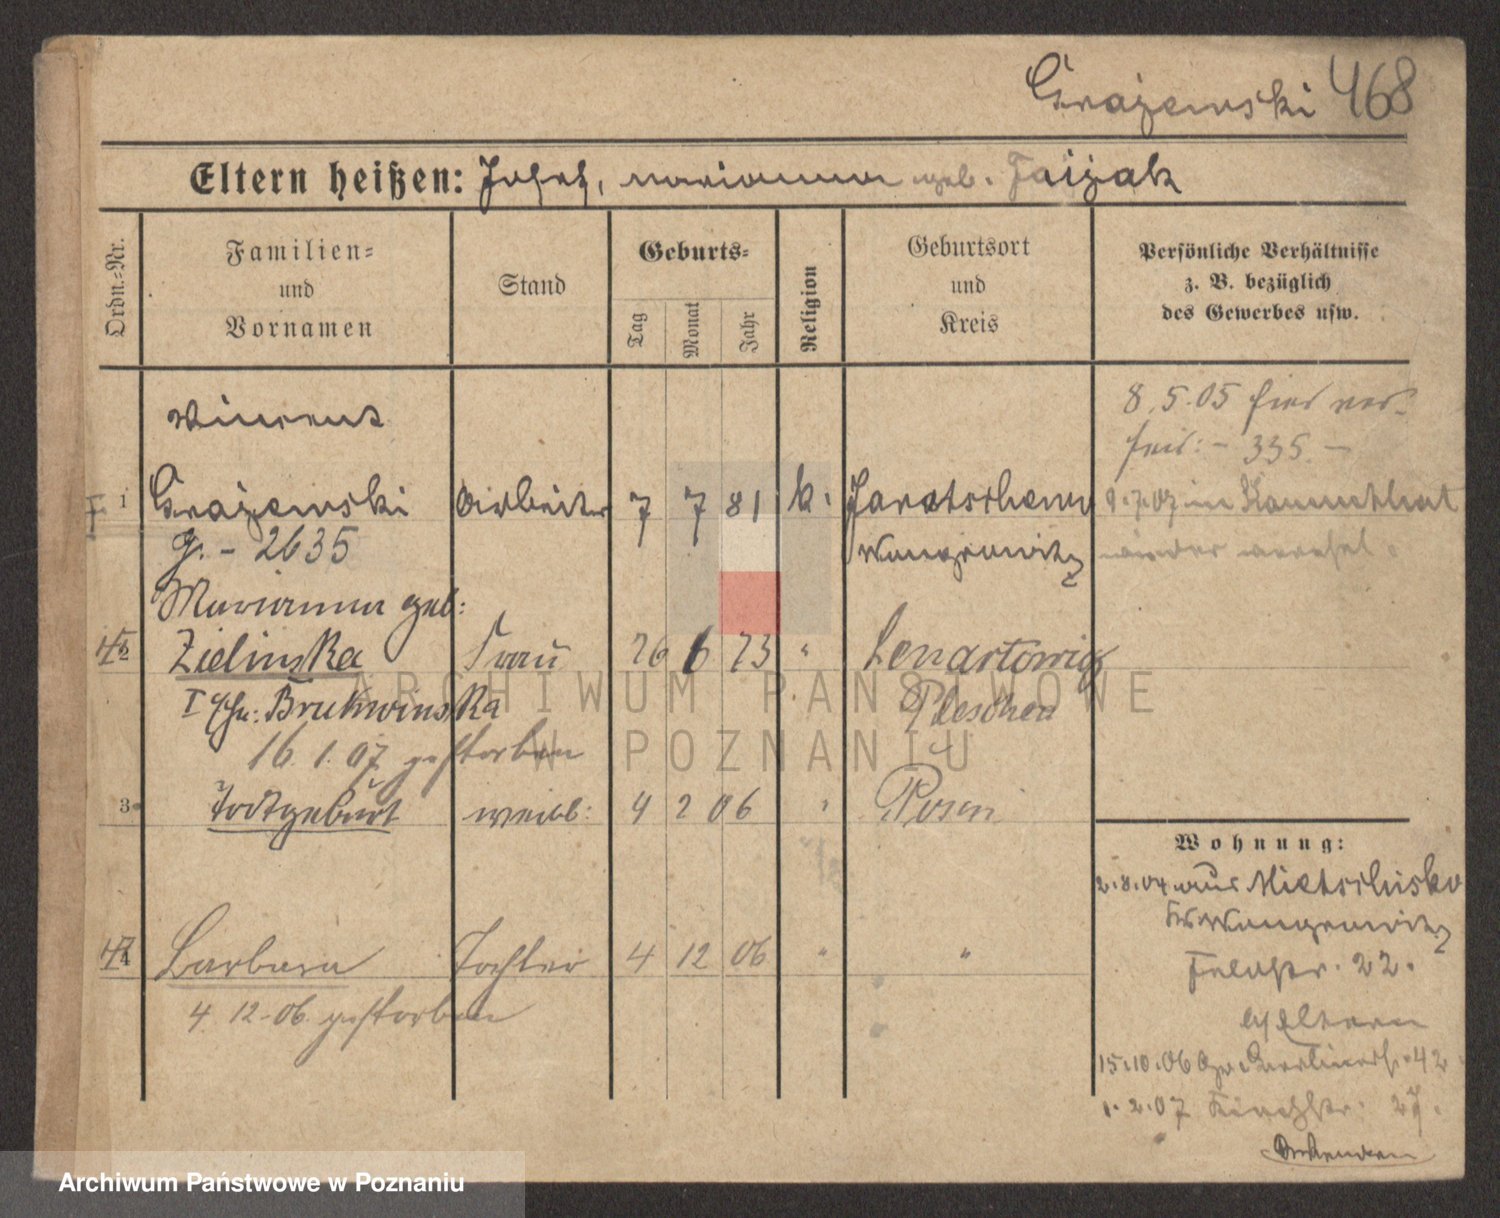 Grażewski 468
Eltern heißen: Josef, Marianna geb. Fajzak
Ordn.=Nr.
Familien=
und
Vornamen
Stand
Geburts=
Tag
Monat
Jahr
Religion
Geburtsort
und
Kreis
Persönliche Verhältnisse
z. B. bezüglich
des Gewerbes usw.
Vincent
1 Grażewski Arbeiter 7 7 81 k. Jaratschewo
g. - 2635 Wongrowitz
Marianna geb:
2 Zielinska Frau 26 6 73 " Lenartowitz
I Ehe: Brukwinska Pleschen
16. 1. 07 gestorben
3 Todtgeburt weibl: 4 2 06 " Posen
4 Barbara Tochter 4 12 06 " "
4. 12. 06. gestorben
8. 5. 05 hier
- 335 -
9.7.07 in
Wohnung:
2.8.04 aus Mietschisko
Kr Wongrowitz
Feldstr. 22.
b/ Eltern
15.10.06 42
1.2.07 Kirchstr. 27.
ARCHIWUM PAŃSTWOWE
W POZNANIU
Archiwum Państwowe w Poznaniu